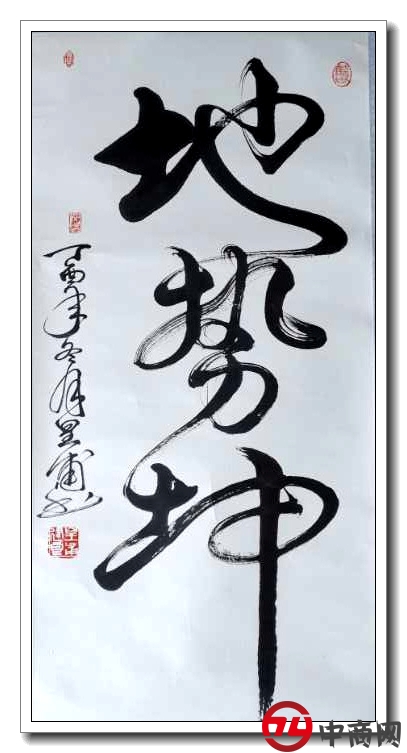 地势坤
丁酉年冬月呈甫书
中商网